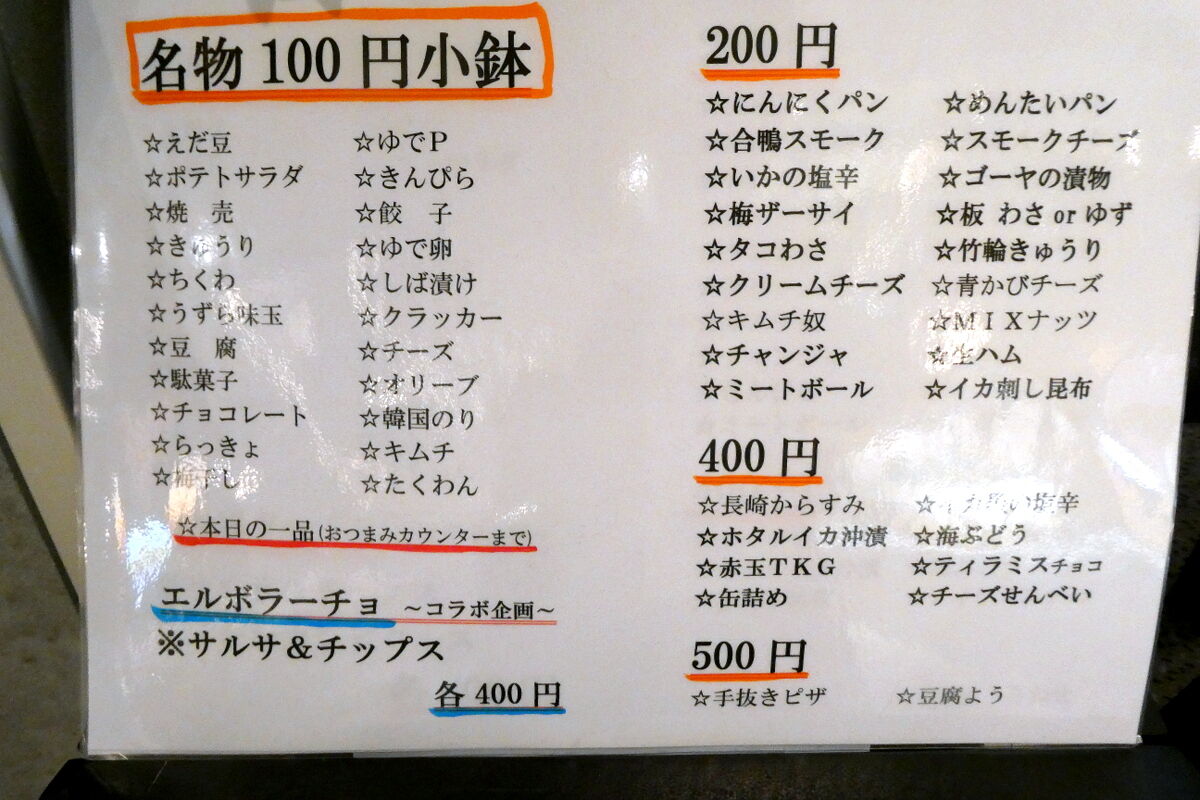 名物100円小鉢
☆えだ豆
☆ポテトサラダ
☆焼　売
☆きゅうり
☆ちくわ
☆うずら味玉
☆豆　腐
☆駄菓子
☆チョコレート
☆らっきょ
☆梅干し
☆ゆでP
☆きんぴら
☆餃　子
☆ゆで卵
☆しば漬け
☆クラッカー
☆チーズ
☆オリーブ
☆韓国のり
☆キムチ
☆たくわん
☆本日の一品(おつまみカウンターまで)
エルボラーチョ ～コラボ企画～
※サルサ＆チップス
各400円
200円
☆にんにくパン
☆合鴨スモーク
☆いかの塩辛
☆梅ザーサイ
☆タコわさ
☆クリームチーズ
☆キムチ奴
☆チャンジャ
☆ミートボール
☆めんたいパン
☆スモークチーズ
☆ゴーヤの漬物
☆板 わさ or ゆず
☆竹輪きゅうり
☆青かびチーズ
☆ＭＩＸナッツ
☆生ハム
☆イカ刺し昆布
400円
☆長崎からすみ
☆ホタルイカ沖漬
☆赤玉ＴＫＧ
☆缶詰め
☆の塩辛
☆海ぶどう
☆ティラミスチョコ
☆チーズせんべい
500円
☆手抜きピザ
☆豆腐よう